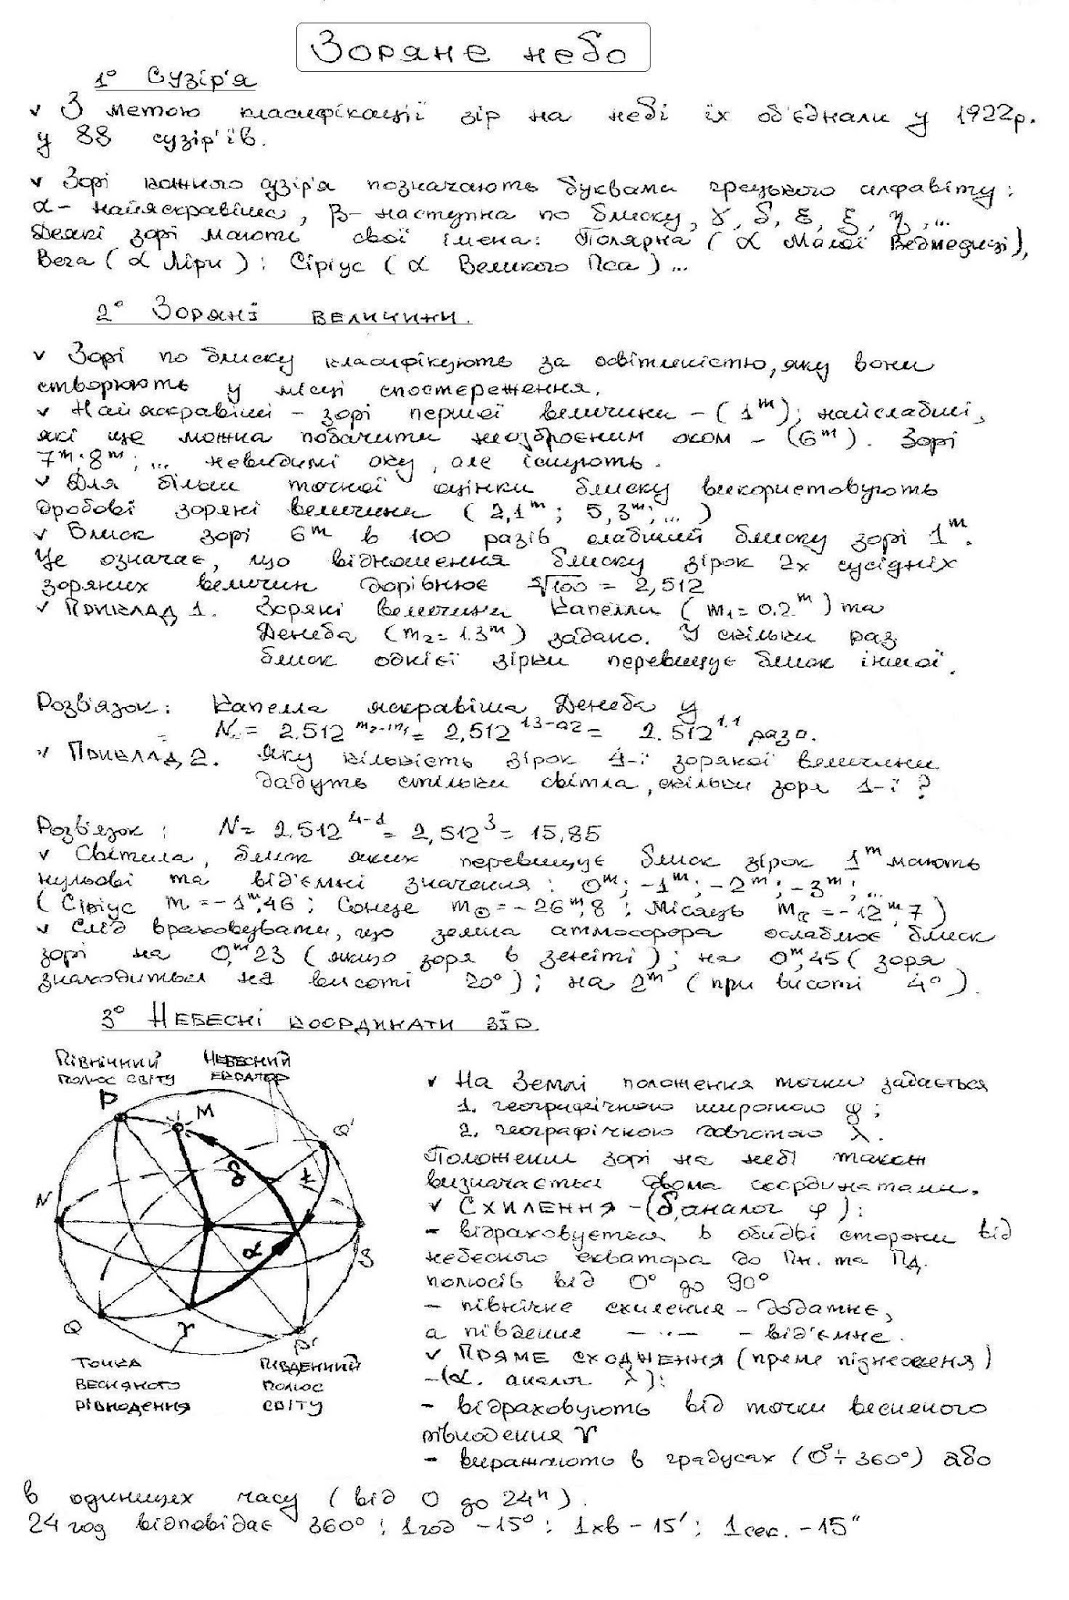 Зоряне небо
1° Сузір'я
✓ З метою класифікації зір на небі їх об'єднали у 1922р.
у 88 сузір'їв.
✓ Зорі кожного сузір'я позначають буквами грецького алфавіту:
α- найяскравіша, β- наступна по блиску, γ, δ, ε, ξ, η, ...
Деякі зорі мають свої імена: Полярна (α Малої Ведмедиці),
Вега (α Ліри); Сіріус (α Великого Пса) ...
2° Зоряні величини.
✓ Зорі по блиску класифікують за освітленістю, яку вони
створюють у місці спостереження.
✓ Найяскравіші - зорі першої величини - (1ᵐ); найслабші,
які ще можна побачити неозброєним оком - (6ᵐ). Зорі
7ᵐ; 8ᵐ; ... невидимі оку, але існують.
✓ Для більш точної оцінки блиску використовують
дробові зоряні величини (2,1ᵐ; 5,3ᵐ; ...)
✓ Блиск зорі 6ᵐ в 100 разів слабший блиску зорі 1ᵐ.
Це означає, що відношення блиску зірок 2х сусідніх
зоряних величин дорівнює ⁵√100 = 2,512
✓ Приклад 1. Зоряні величини Капелли (m₁= 0.2ᵐ) та
Денеба (m₂= 1.3ᵐ) задано. У скільки раз
блиск однієї зірки перевищує блиск іншої.
Розв'язок: Капелла яскравіша Денеба у
N = 2.512^(m₂-m₁) = 2,512^(1.3-0.2) = 2.512^1.1 раза.
✓ Приклад 2. Яку кількість зірок 4-ї зоряної величини
дадуть стільки світла, скільки зоря 1-ї ?
Розв'язок: N= 2.512^(4-1) = 2,512³ = 15,85
✓ Світила, блиск яких перевищує блиск зірок 1ᵐ мають
нульові та від'ємні значення: 0ᵐ; -1ᵐ; -2ᵐ; -3ᵐ; ...
(Сіріус m = -1ᵐ,46; Сонце m☉ = -26ᵐ,8; Місяць m☾ = -12ᵐ,7)
✓ Слід враховувати, що земна атмосфера ослаблює блиск
зорі на 0ᵐ,23 (якщо зоря в зеніті); на 0ᵐ,45 (зоря
знаходиться на висоті 20°); на 2ᵐ (при висоті 4°).
3° Небесні координати зір.
Північний полюс світу
Небесний екватор
P
M
Q'
δ
t
N
α
S
Q
♈
P'
Точка весняного рівнодення
Південний полюс світу
✓ На Землі положення точки задається
1. географічною широтою φ;
2. географічною довготою λ.
Положення зорі на небі також
визначається двома координатами.
✓ Схилення - (δ, аналог φ):
- відраховується в обидві сторони від
небесного екватора до Пн. та Пд.
полюсів від 0° до 90°
- північне схилення - додатнє,
а південне -··- - від'ємне.
✓ Пряме сходження (пряме піднесення)
-(α, аналог λ):
- відраховують від точки весняного
рівнодення ♈
- виражають в градусах (0°÷360°) або
в одиницях часу (від 0 до 24ʰ).
24 год відповідає 360°; 1год -15°; 1хв - 15'; 1сек. -15"